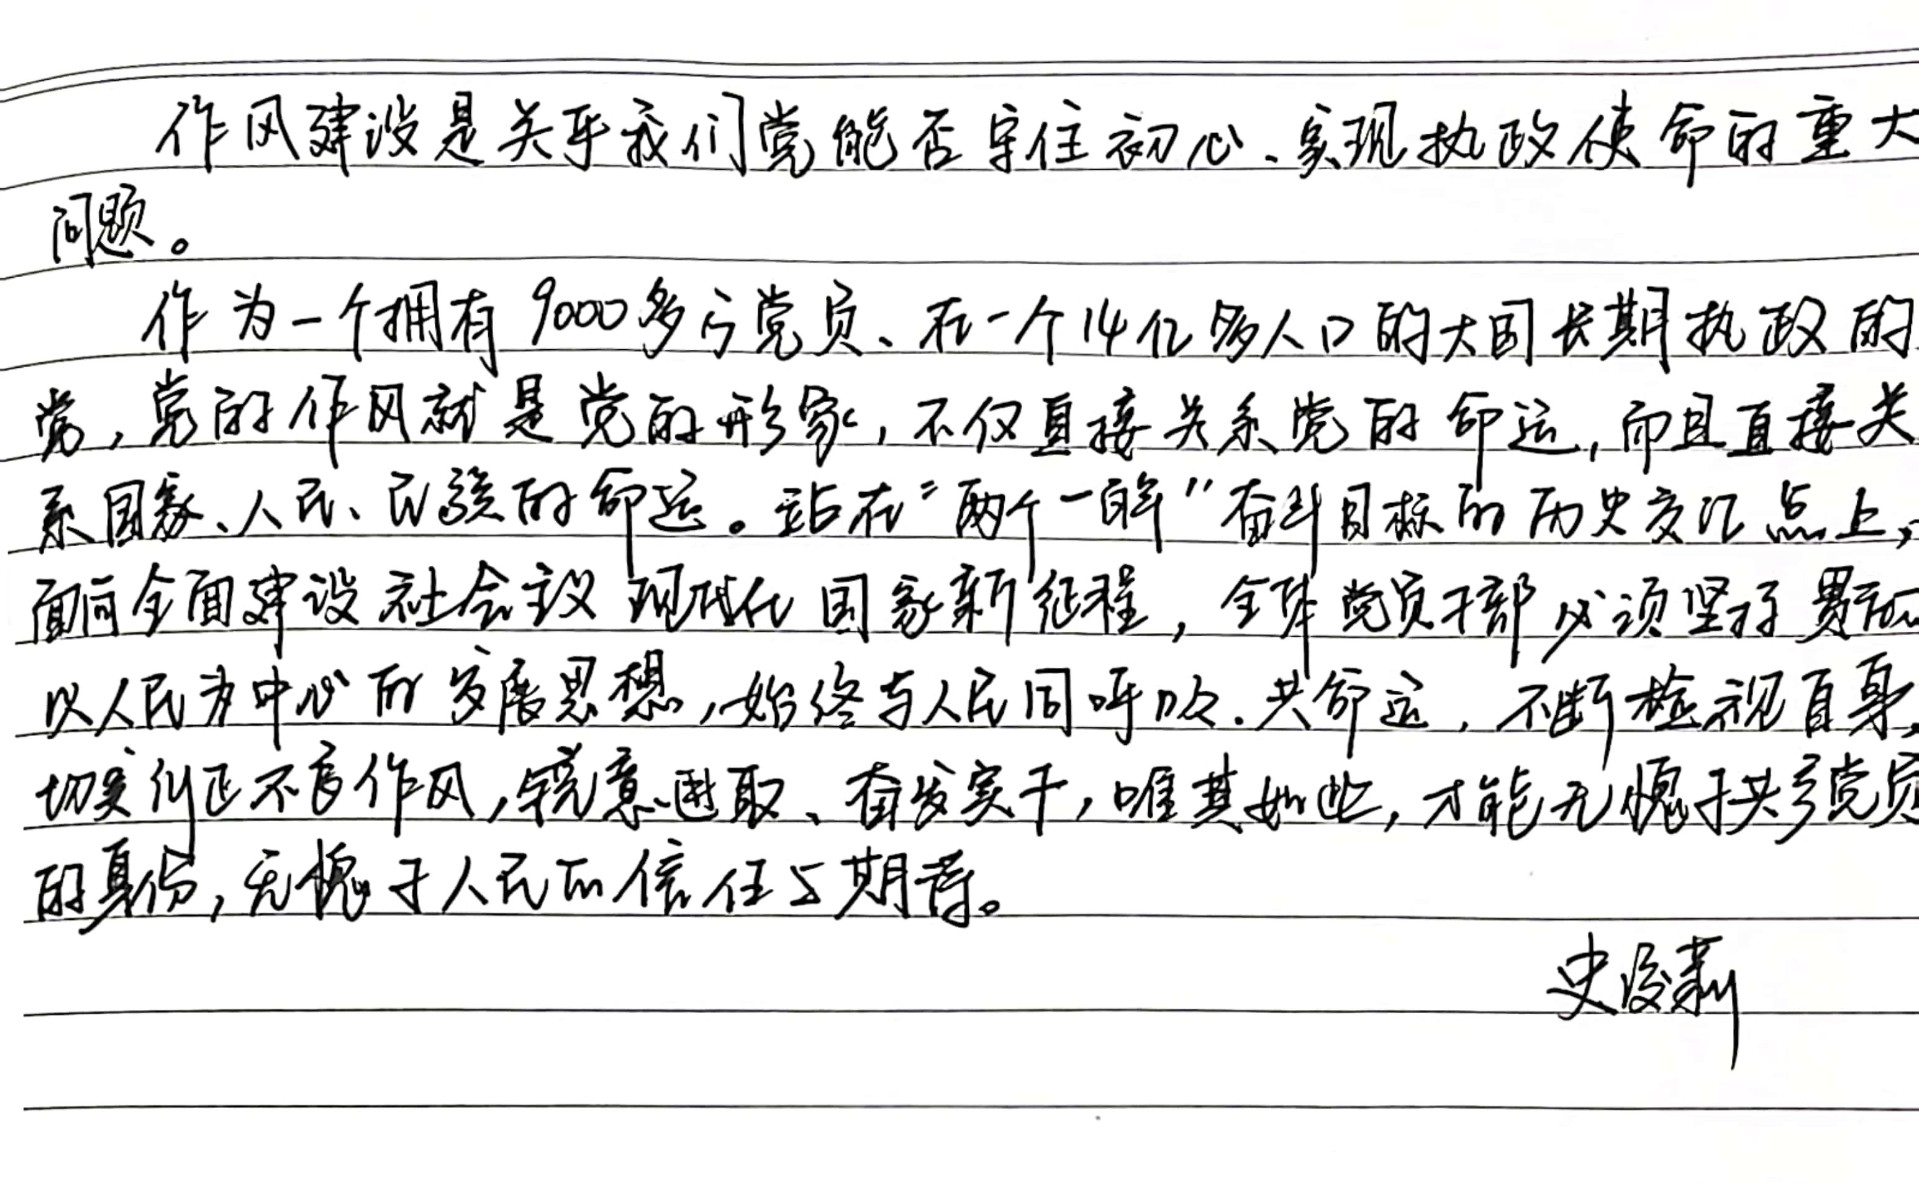 作风建设是关乎我们党能否守住初心、实现执政使命的重大
问题。
作为一个拥有9000多万党员、在一个14亿多人口的大国长期执政的
党,党的作风就是党的形象,不仅直接关系党的命运,而且直接关
系国家、人民、民族的命运。站在“两个一百年”奋斗目标的历史交汇点上,
面向全面建设社会主义现代化国家新征程,全体党员干部必须坚持贯彻
以人民为中心的发展思想,始终与人民同呼吸、共命运,不断检视自身,
切实纠正不良作风,锐意进取、奋发实干,唯其如此,才能无愧于共产党员
的身份,无愧于人民的信任与期待。
史俊莉